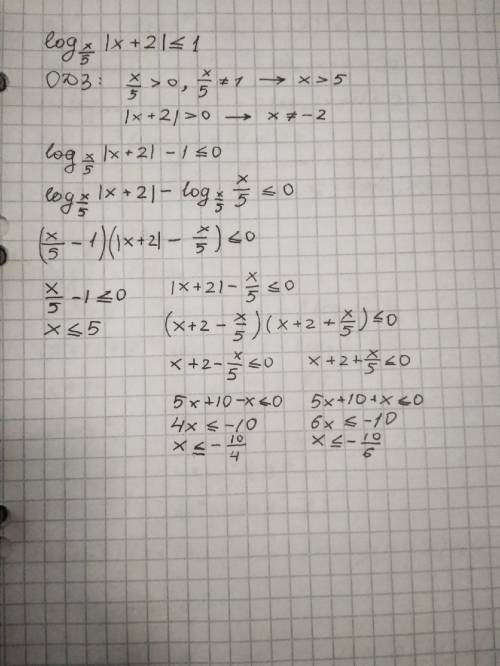 log_{x/5} |x+2| ≤ 1
ОДЗ: x/5 > 0, x/5 ≠ 1 → x > 5
|x+2| > 0 → x ≠ -2
log_{x/5} |x+2| - 1 ≤ 0
log_{x/5} |x+2| - log_{x/5} x/5 ≤ 0
(x/5 - 1)(|x+2| - x/5) ≤ 0
x/5 - 1 ≤ 0 |x+2| - x/5 ≤ 0
x ≤ 5 (x+2 - x/5)(x+2 + x/5) ≤ 0
x+2 - x/5 ≤ 0 x+2 + x/5 ≤ 0
5x+10-x ≤ 0 5x+10+x ≤ 0
4x ≤ -10 6x ≤ -10
x ≤ -10/4 x ≤ -10/6